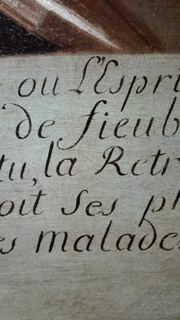 ou L'Espri
de fieub
tu, la Retr
oit ses pl
es malade